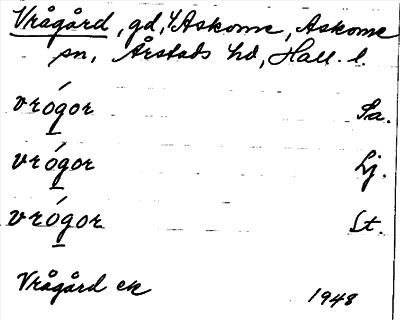 Vrågård, gd, i Askome, Askome
sn, Årstads hd, Hall. l.
vrógor Sa.
vrógor Lj.
vrógor St.
Vrågård ek 1948